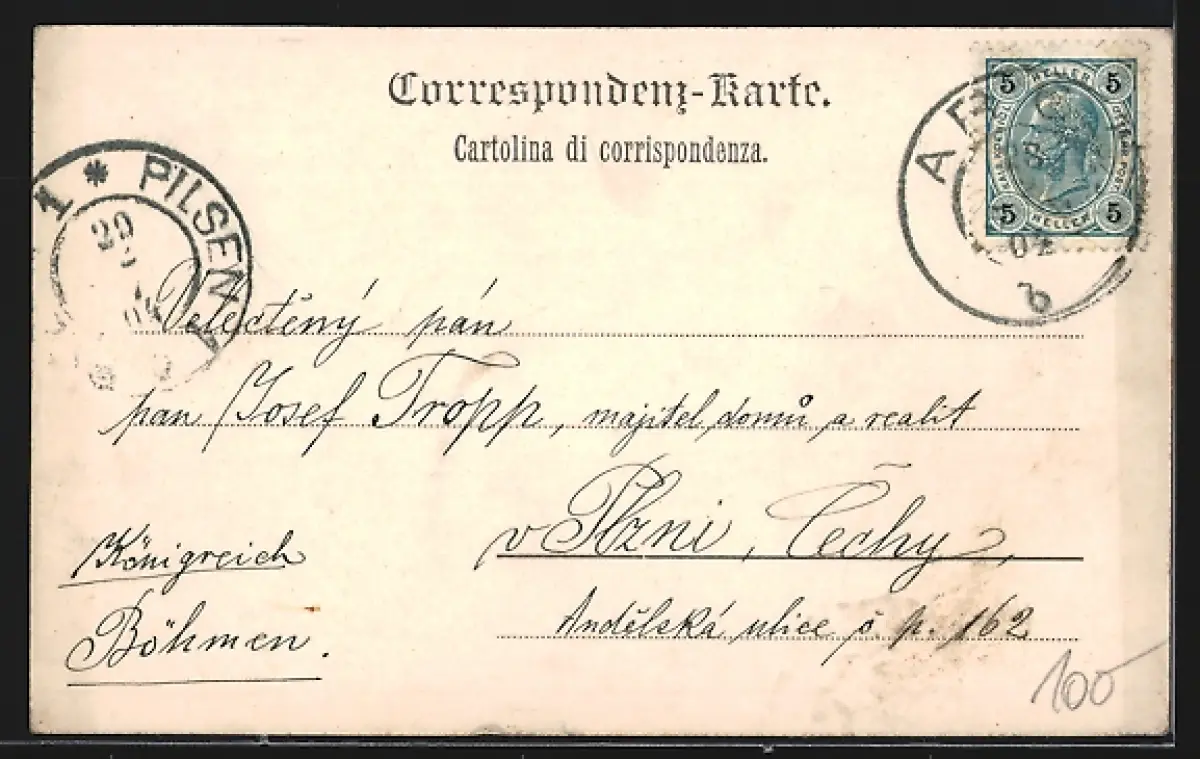 Correspondenz-Karte.
Cartolina di corrispondenza.
5 HELLER 5
5 HELLER 5
04
b
1 * PILSEN 1
29
Velectěný pán
pan Josef Tropp, majitel domů a realit
v Plzni, Čechy,
Andělská ulice č. p. 162
Königreich
Böhmen.
100